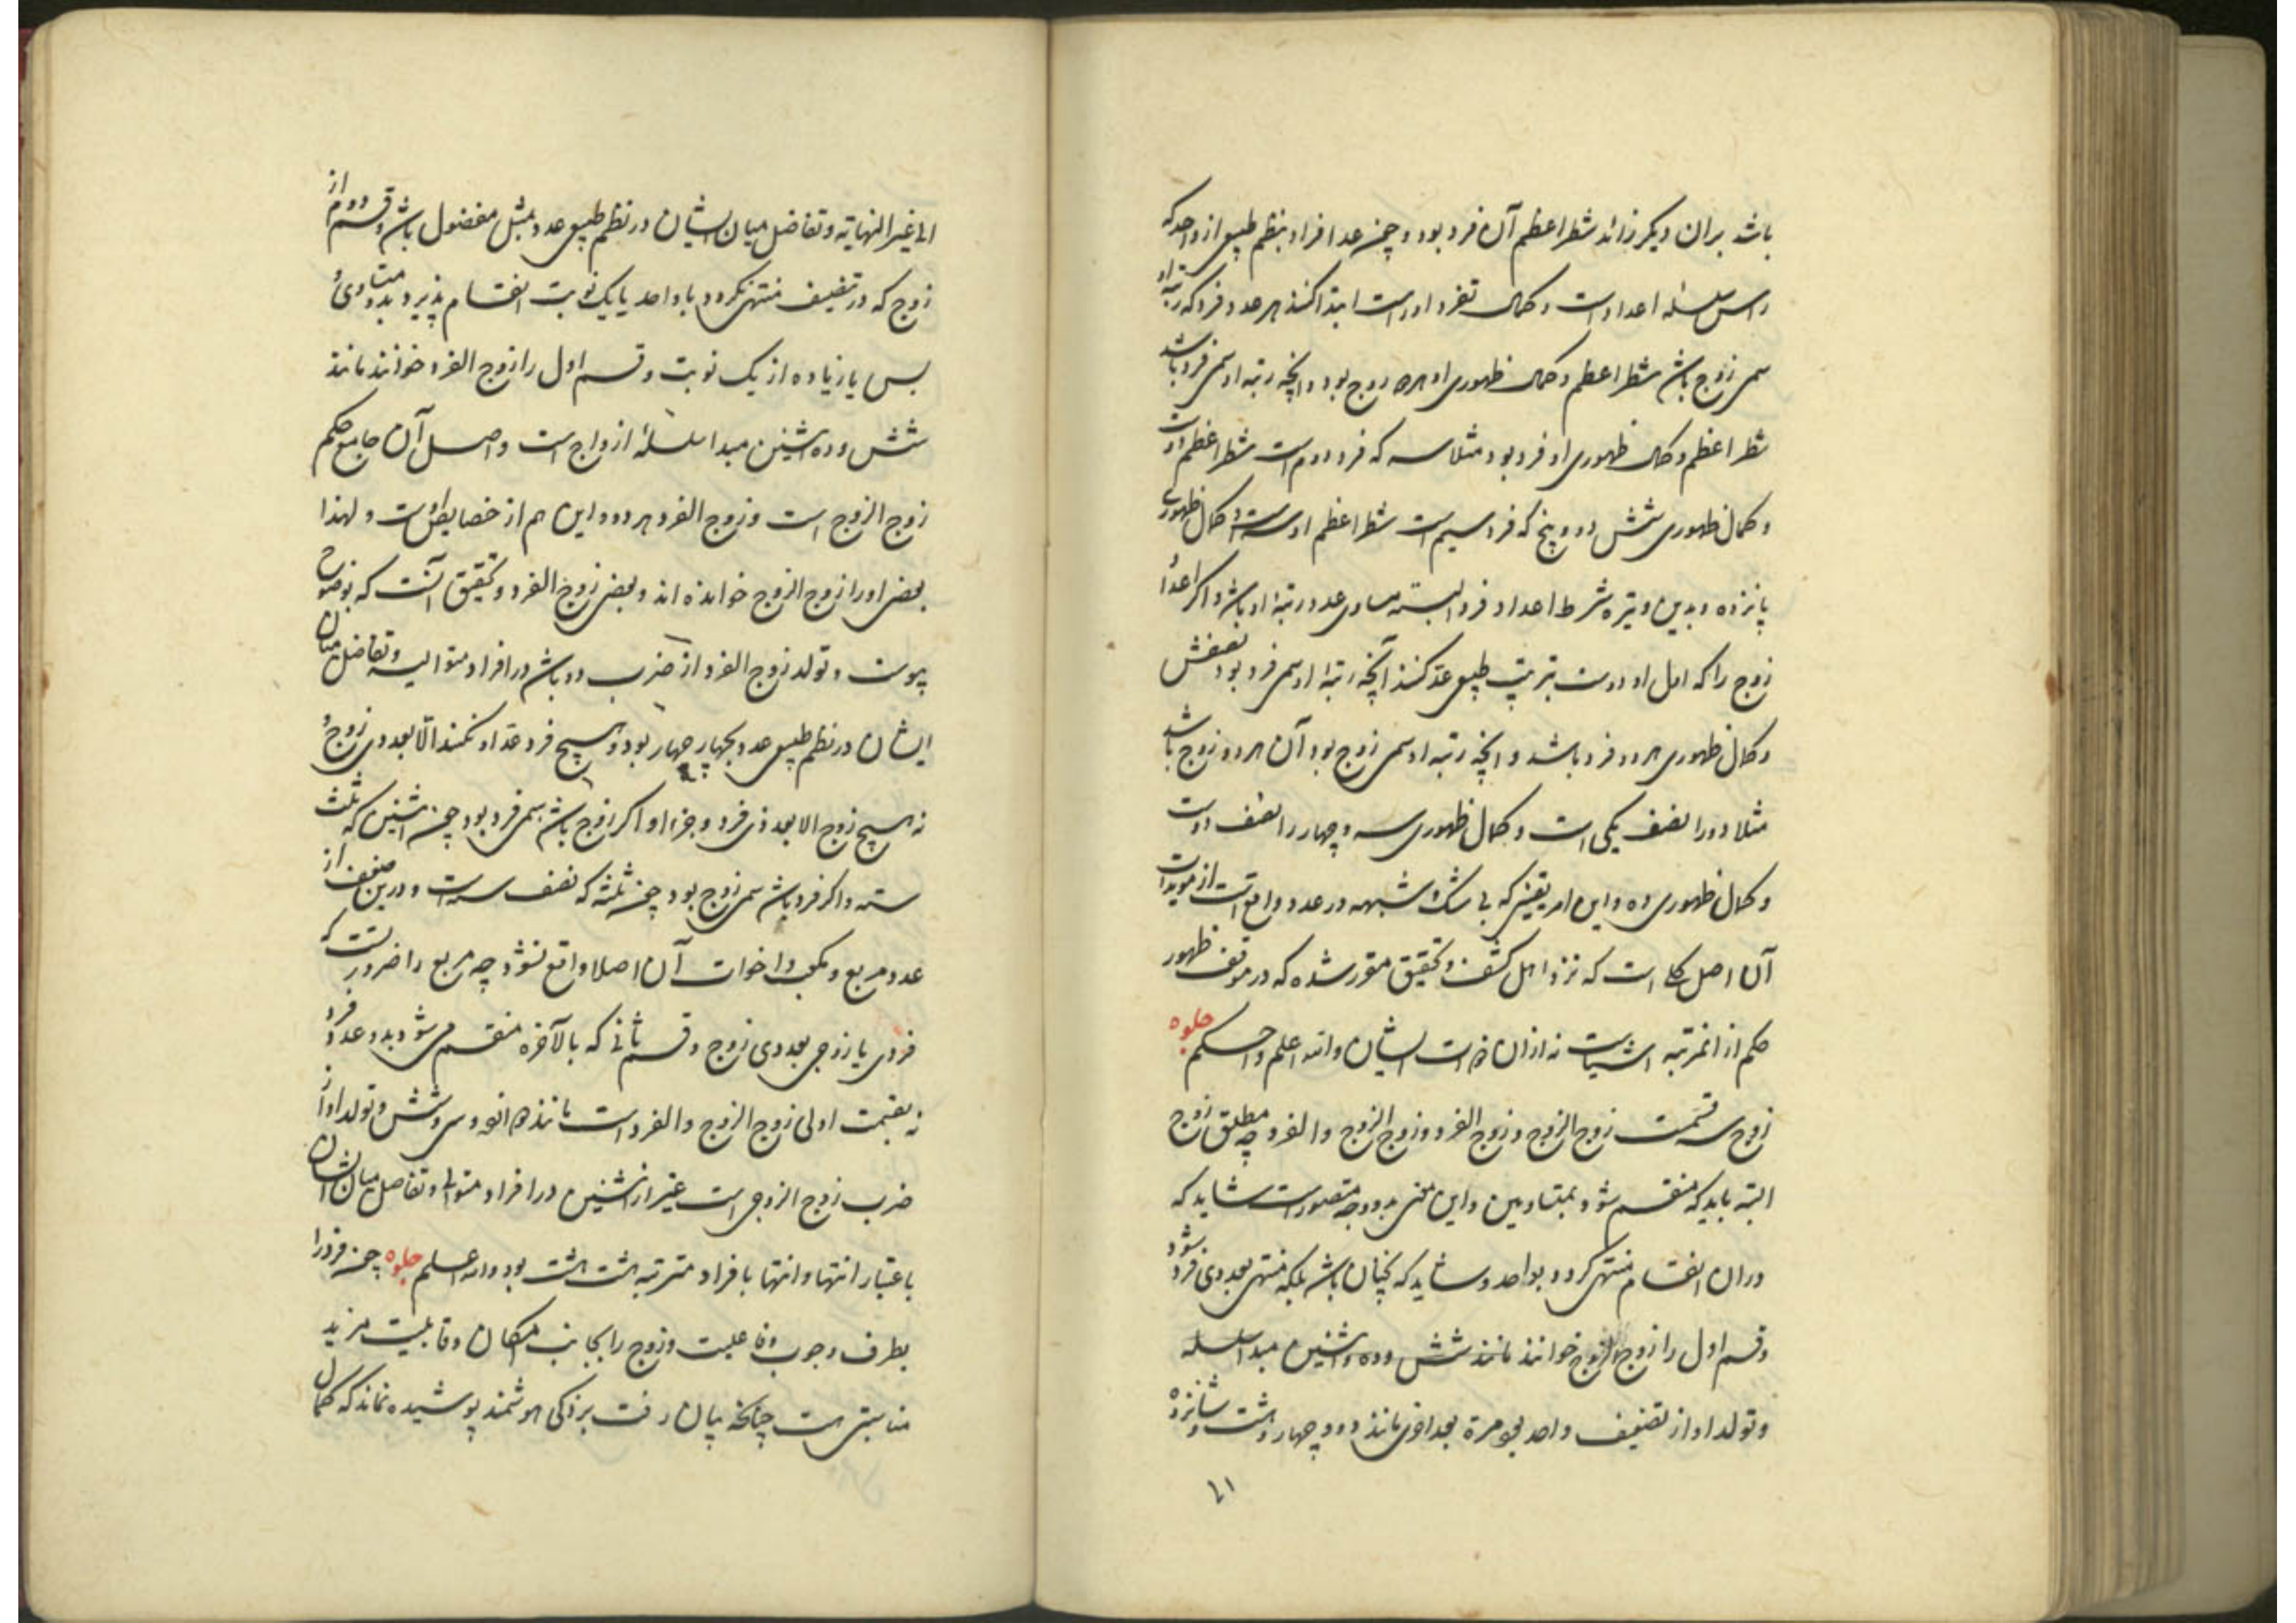 باشد بران دیگر زائد شطر اعظم آن فرد بود و چون عد افراد بنظم طبیعی از واحد که
راس سلسله اعداد است و کمال تفرد او راست ابتدا کنند هر عدد فرد که رتبه او
سمی زوج باشد شطر اعظم و کمال ظهوری او هر دو زوج بود و آنچه رتبه او سمی فرد باشد
شطر اعظم و کمال ظهوری او فرد بود مثلا سه که فرد دوم است شطر اعظم او دو است
و کمال ظهوری شش و پنج که فرد سیم است شطر اعظم او سه است و کمال ظهوری
پانزده و بدین وتیره شطر اعداد فرد البته مساوی عدد رتبه او باشد و اگر اعداد
زوج را که اول او دوست بترتیب طبیعی عد کنند آنچه رتبه او سمی فرد بود نصفش
و کمال ظهوری هر دو فرد باشد و آنچه رتبه او سمی زوج بود آن هر دو زوج باشد
مثلا دو را نصف یکی است و کمال ظهوری سه و چهار را نصف دوست
و کمال ظهوری ده و این امر یقینی که بی شک و شبهه در عدد واقع است از مویدات
آن اصل کلی است که نزد اهل کشف و تحقیق مقرر شده که در موقف ظهور
حکم از آنمرتبه اشیاست نه ازان ذات ایشان والله اعلم و احکم جلوه
زوج سه قسمت زوج الزوج و زوج الفرد و زوج الزوج والفرد چه مطلق زوج
البته باید که منقسم شود بمتساویین و این معنی بدو وجه متصورست شاید که
دران انقسام منتهی کردد بواحد و شاید که نچنان باشد بلکه منتهی بعددی فرد شود
و قسم اول را زوج الزوج خوانند مانند شش و ده و اثنین مبدا سلسله
و تولد او از تضعیف واحد بود مرة بعد اخری مانند دو و چهار و هشت و شانزده
۲۱
الی غیر النهایة و تفاضل میان ایشان در نظم طبیعی عدد بمثل مفضول باشد و قسم دوم از
زوج که در تنصیف منتهی نکردد با واحد یا یک نوبت انقسام پذیرد بدو متساوی
بس یا زیاده از یک نوبت و قسم اول را زوج الفرد خوانند مانند
شش و ده و اثنین مبدا سلسلۀ ازواج است و اصل آن جامع حکم
زوج الزوج است و زوج الفرد هر دو و این هم از خصایص اوست و لهذا
بعضی او را زوج الزوج خوانده اند و بعضی زوج الفرد و تحقیق آنست که بوضوح
پیوست و تولد زوج الفرد از ضرب دو باشد در افراد متوالیه و تفاضل میان
ایشان در نظم طبیعی عدد بچهار چهار بود و هیچ فرد عد او نکند الا بعددی زوج و
نه هیچ زوج الا بعددی فرد و جزء او اگر زوج باشد سمی فرد بود چون اثنین که ثلث
سته و اگر فرد باشد سمی زوج بود چون ثلثه که نصف سته است و درین صنف از
عدد مربع و مکعب و اخوات آن اصلا واقع نشود چه مربع را ضرورتست که
فردی یا زوجی بعددی زوج و قسم ثانی که بالآخره منقسم می شود بدو عدد فرد
نه بقسمت اولی زوج الزوج والفرد است مانند دوازده و سی و شش و تولد او از
ضرب زوج الزوجی است غیر از اثنین در افراد متوالی و تفاضل میان ایشان
باعتبار انتها و انتها بافراد مترتبه هشت هشت بود والله اعلم جلوه چون فرد را
بطرف وجوب و فاعلیت و زوج را بجانب امکان و قابلیت مزید
مناسبتی هست چنانکه بیان رفت بر ذکی هوشمند پوشیده نماند که کمال